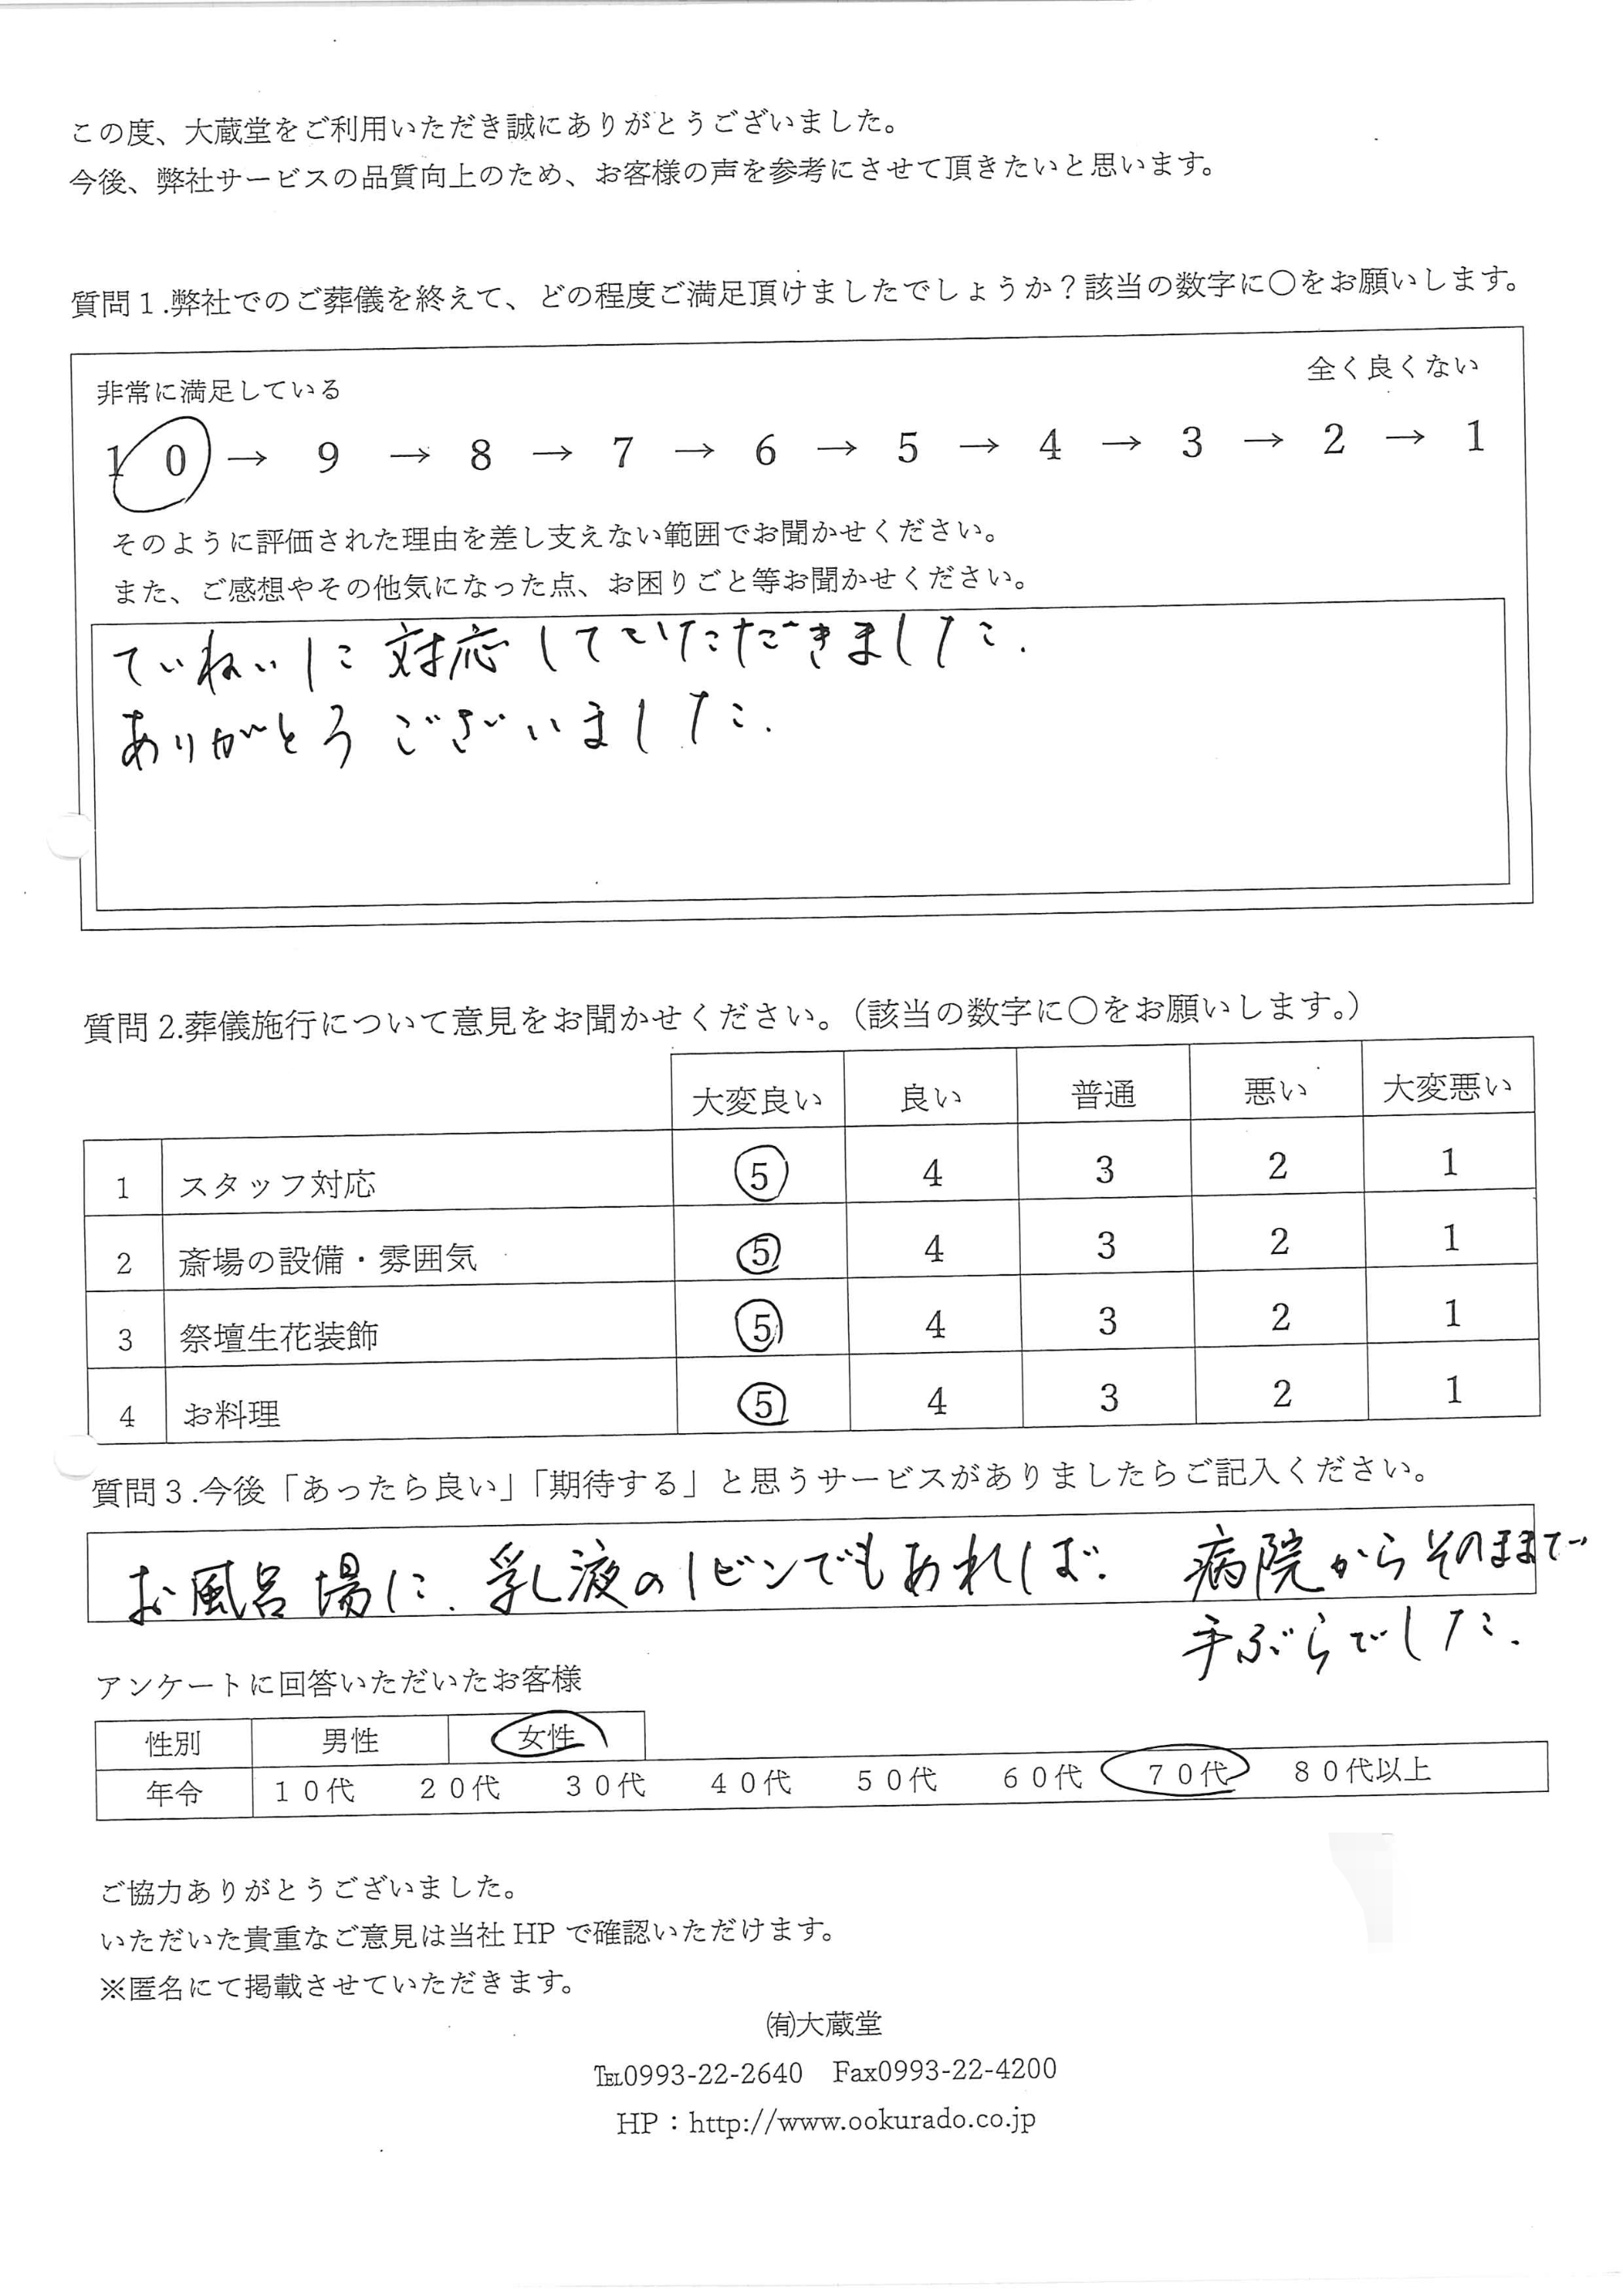 この度、大蔵堂をご利用いただき誠にありがとうございました。
今後、弊社サービスの品質向上のため、お客様の声を参考にさせて頂きたいと思います。
質問１.弊社でのご葬儀を終えて、どの程度ご満足頂けましたでしょうか？該当の数字に〇をお願いします。
非常に満足している 全く良くない
１０ → ９ → ８ → ７ → ６ → ５ → ４ → ３ → ２ → １
そのように評価された理由を差し支えない範囲でお聞かせください。
また、ご感想やその他気になった点、お困りごと等お聞かせください。
ていねいに対応していただきました.
ありがとうございました.
質問 2.葬儀施行について意見をお聞かせください。（該当の数字に〇をお願いします。）
大変良い 良い 普通 悪い 大変悪い
1 スタッフ対応 5 4 3 2 1
2 斎場の設備・雰囲気 5 4 3 2 1
3 祭壇生花装飾 5 4 3 2 1
4 お料理 5 4 3 2 1
質問３.今後「あったら良い」「期待する」と思うサービスがありましたらご記入ください。
お風呂場に. 乳液の小ビンでもあれば. 病院からそのままで
手ぶらでした.
アンケートに回答いただいたお客様
性別 男性 女性
年令 １０代 ２０代 ３０代 ４０代 ５０代 ６０代 ７０代 ８０代以上
ご協力ありがとうございました。
いただいた貴重なご意見は当社 HP で確認いただけます。
※匿名にて掲載させていただきます。
㈲大蔵堂
℡0993-22-2640 Fax0993-22-4200
HP：http://www.ookurado.co.jp